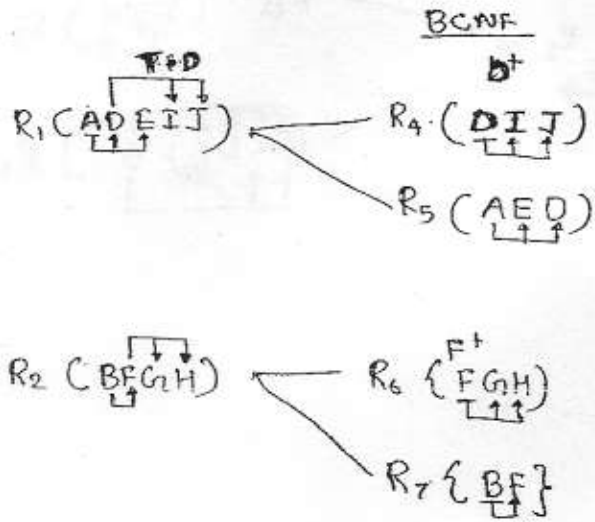 BCNF
T.D
D+
R1 (ADEIJ)
R4. (DIJ)
R5 (AED)
F+
R2 (BFGH)
R6 {FGH)
R7 {BF}